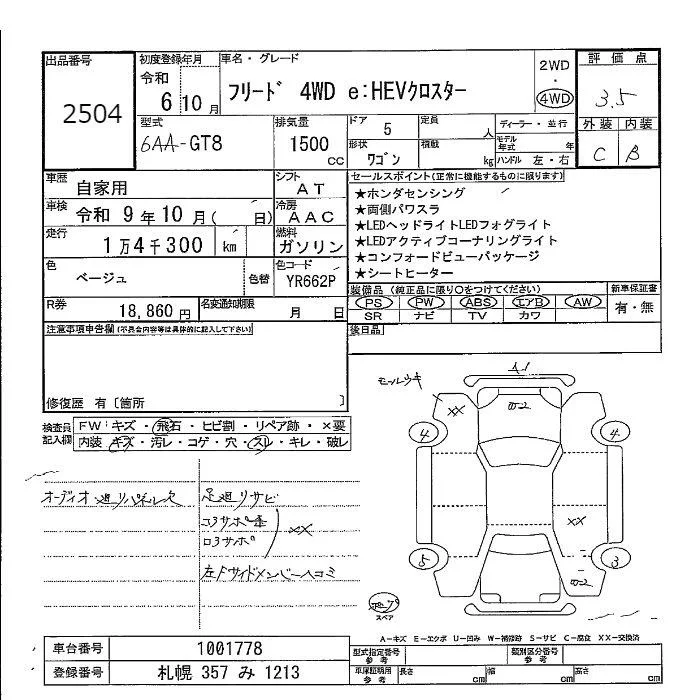 出品番号
2504
初度登録年月
令和
6 10 月
車名・グレード
フリード 4WD e:HEVクロスター
2WD
・
4WD
評価点
3.5
外装 内装
C B
型式
6AA-GT8
排気量
1500 cc
ドア 5
定員 人
形状 ワゴン
積載 kg
ディーラー・並行
モデル年式 年
ハンドル 左・右
車歴
自家用
シフト
AT
車検
令和 9 年 10 月( 日)
冷房
AAC
走行
1 万 4 千 300 km
燃料
ガソリン
色
ベージュ
色替
色コード
YR662P
R券
18,860 円
名変通知期限
月 日
セールスポイント(正常に機能するものに限ります)
★ホンダセンシング
★両側パワスラ
★LEDヘッドライトLEDフォグライト
★LEDアクティブコーナリングライト
★コンフォードビューパッケージ
★シートヒーター
装備品 (純正品に限り○をつけてください)
PS PW ABS エアB AW
SR ナビ TV カワ
新車保証書
有・無
注意事項申告欄(不具合内容等は具体的に記入して下さい)
後日品
修復歴 有〔箇所 〕
検査員記入欄
FW:キズ・飛石・ヒビ割・リペア跡・×要
内装:キズ・汚レ・コゲ・穴・スレ・キレ・破レ
オーディオ廻りパネル欠
足廻りサビ
コアサポ
ロアサポ
XX
左Fサイドメンバー凹コミ
モールウキ
A1
XX
4
4
XX
5
3
スペア
A-キズ E-エクボ U-凹み W-補修跡 S-サビ C-腐食 XX-交換済
車台番号
1001778
登録番号
札幌 357 み 1213
型式指定番号
参考
類別区分番号
参考
車庫証明用
参考
長さ cm
幅 cm
高さ cm